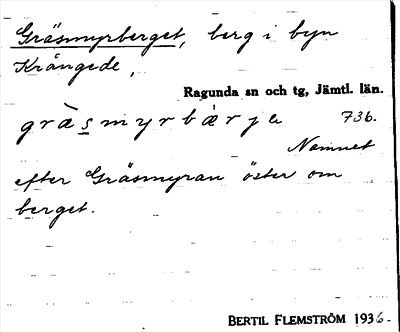 Gräsmyrberget, berg i byn
Krångede,
Ragunda sn och tg, Jämtl. län.
gràsmyrbærje 736.
Namnet
efter Gräsmyran öster om
berget.
BERTIL FLEMSTRÖM 1936-